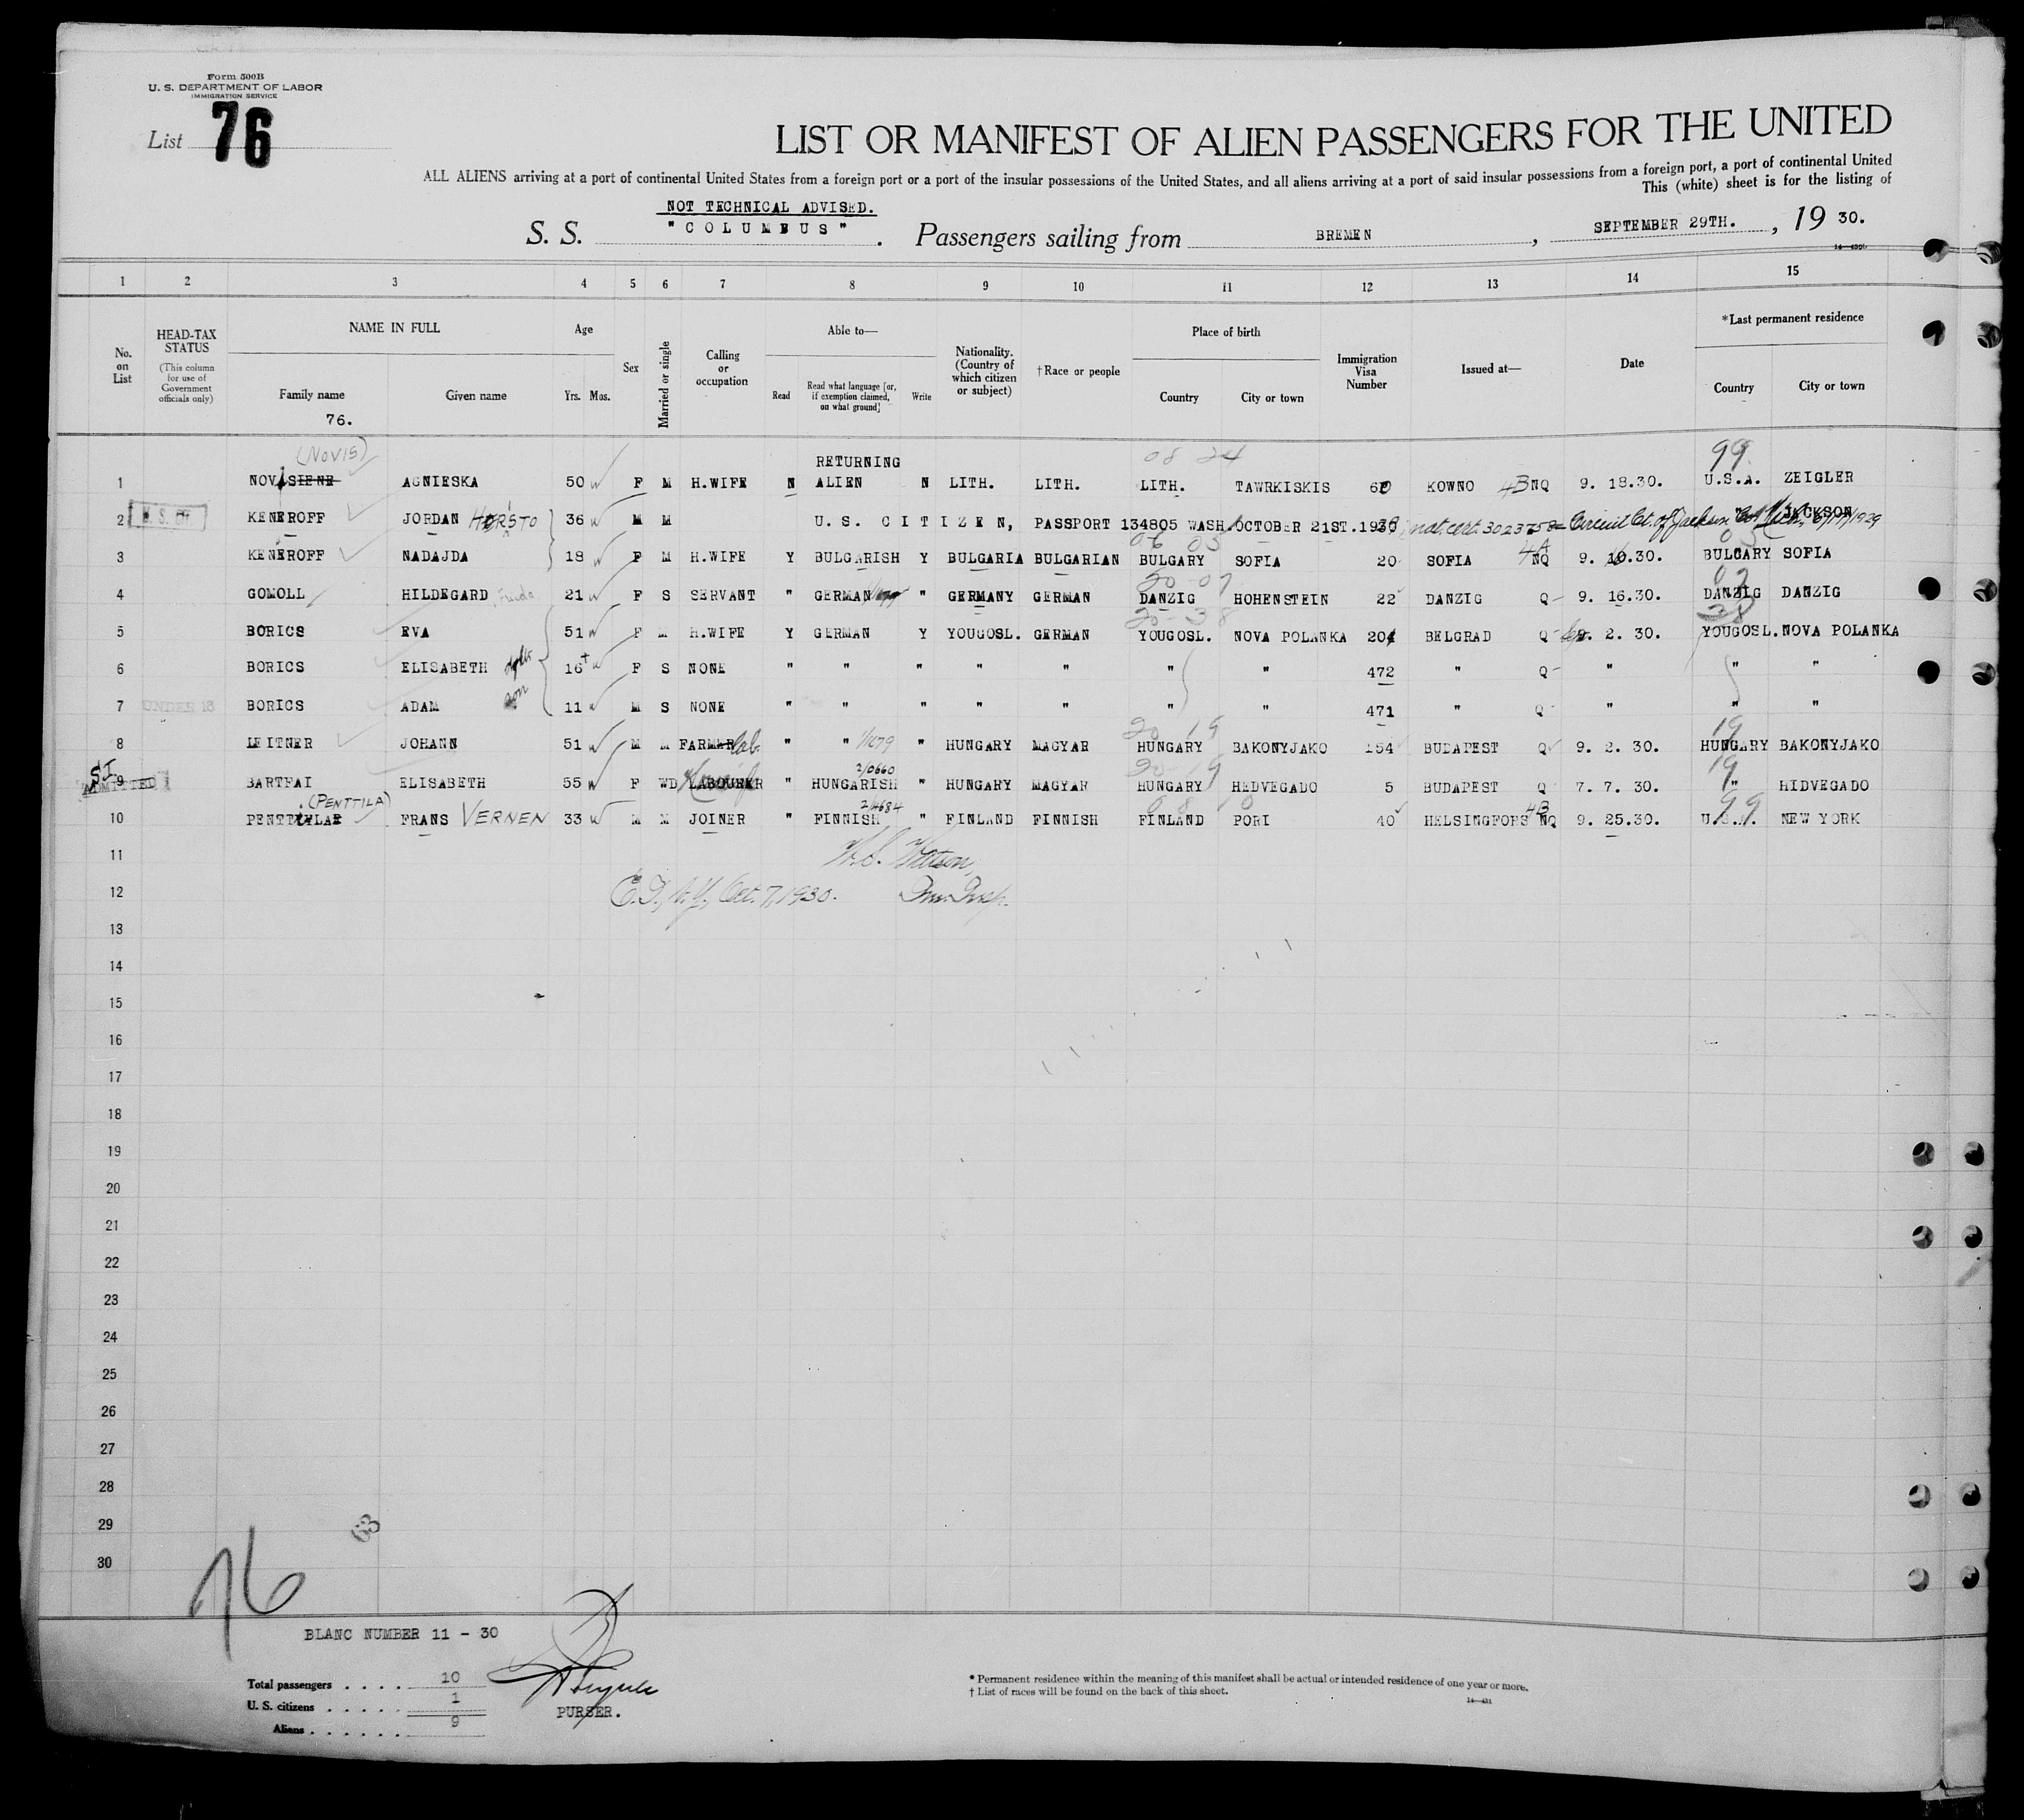 Form 500B
U. S. DEPARTMENT OF LABOR
IMMIGRATION SERVICE
List 76
LIST OR MANIFEST OF ALIEN PASSENGERS FOR THE UNITED
ALL ALIENS arriving at a port of continental United States from a foreign port or a port of the insular possessions of the United States, and all aliens arriving at a port of said insular possessions from a foreign port, a port of continental United
This (white) sheet is for the listing of
NOT TECHNICAL ADVISED.
S. S. "COLUMBUS". Passengers sailing from BREMEN, SEPTEMBER 29TH., 19 30.
1 2 3 4 5 6 7 8 9 10 11 12 13 14 15
No. on List
HEAD-TAX STATUS
(This column for use of Government officials only)
NAME IN FULL
Family name
Given name
76.
Age
Yrs. Mos.
Sex
Married or single
Calling or occupation
Able to—
Read
Read what language [or, if exemption claimed, on what ground]
Write
Nationality. (Country of which citizen or subject)
†Race or people
Place of birth
Country
City or town
Immigration Visa Number
Issued at—
Date
*Last permanent residence
Country
City or town
(NOVIS) RETURNING 08 24 99
1 AGNIESKA 50 F M H.WIFE N ALIEN N LITH. LITH. LITH. TAWRKISKIS KOWNO 4B NQ 9. 18.30. U.S.A. ZEIGLER
2 KENEROFF JORDAN 36 M M U. S. CITIZEN, PASSPORT 134805 WASH. OCTOBER 21ST. nat. cert. Circuit Ct. of Jackson JACKSON
3 KENEROFF NADAJDA 18 F M H.WIFE Y BULGARISH Y BULGARIA BULGARIAN BULGARY SOFIA 20 SOFIA 4A NQ 9. 16.30. BULGARY SOFIA
4 GOMOLL HILDEGARD 21 F S SERVANT " GERMAN " GERMANY GERMAN DANZIG HOHENSTEIN 22 DANZIG Q 9. 16.30. DANZIG DANZIG
5 BORICS EVA 51 F M H.WIFE Y GERMAN Y YOUGOSL. GERMAN YOUGOSL. NOVA POLANKA BELGRAD Q 2. 30. YOUGOSL. NOVA POLANKA
6 BORICS ELISABETH 16 F S NONE " " " " " " " 472 " Q " " "
7 UNDER 16 BORICS ADAM son 11 M S NONE " " " " " " " 471 " Q " " "
8 LEITNER JOHANN 51 M M FARMER lab. " " " HUNGARY MAGYAR HUNGARY BAKONYJAKO 154 BUDAPEST Q 9. 2. 30. HUNGARY BAKONYJAKO
S.I.
ADMITTED
9 BARTFAI ELISABETH 55 F WD LABOURER " HUNGARISH " HUNGARY MAGYAR HUNGARY HEDVEGADO 5 BUDAPEST Q 7. 7. 30. " HIDVEGADO
(PENTTILA)
10 FRANS VERNEN 33 M M JOINER " FINNISH " FINLAND FINNISH FINLAND PORI 40 HELSINGFORS 4B NQ 9. 25.30. U.S.A. NEW YORK
11
12 Oct. 7, 1930.
13
14
15
16
17
18
19
20
21
22
23
24
25
26
27
28
29
30
63
76
BLANC NUMBER 11 - 30
Total passengers . . . . 10
U. S. citizens . . . . . 1
Aliens . . . . . . 9
PURSER.
* Permanent residence within the meaning of this manifest shall be actual or intended residence of one year or more.
† List of races will be found on the back of this sheet.